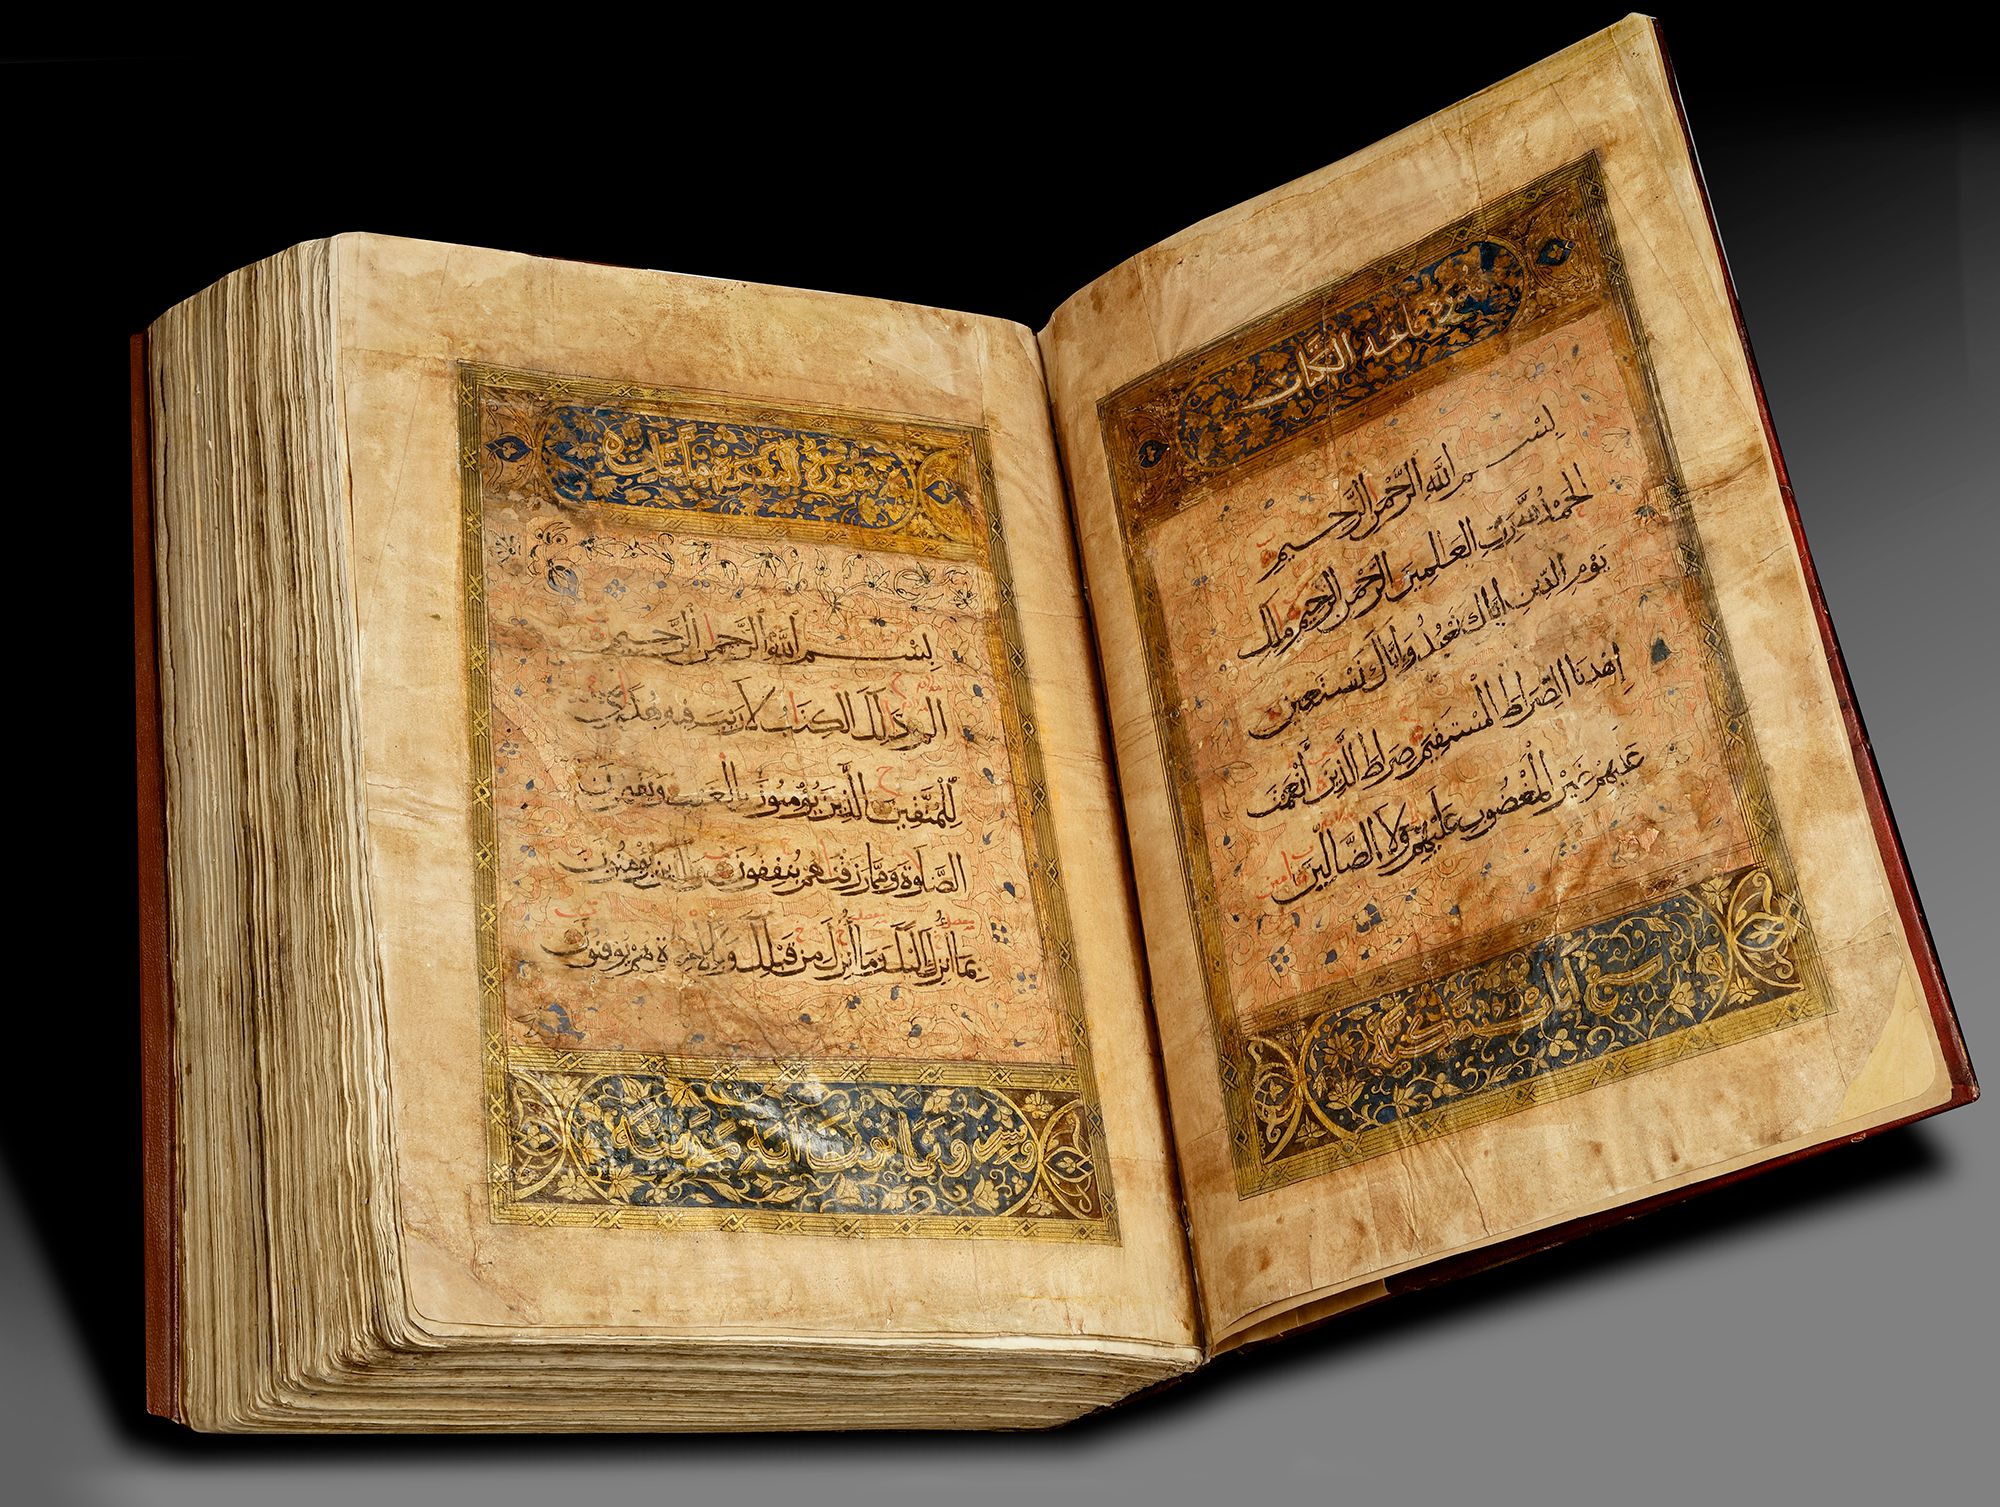 سورة فاتحة الكتاب
بِسْمِ اللَّهِ الرَّحْمَنِ الرَّحِيمِ
الْحَمْدُ لِلَّهِ رَبِّ الْعَالَمِينَ الرَّحْمَنِ الرَّحِيمِ مَالِكِ
يَوْمِ الدِّينِ إِيَّاكَ نَعْبُدُ وَإِيَّاكَ نَسْتَعِينُ
اهْدِنَا الصِّرَاطَ الْمُسْتَقِيمَ صِرَاطَ الَّذِينَ أَنْعَمْتَ
عَلَيْهِمْ غَيْرِ الْمَغْضُوبِ عَلَيْهِمْ وَلَا الضَّالِّينَ
امين
سبع آيات
سورة البقرة مائتان
بِسْمِ اللَّهِ الرَّحْمَنِ الرَّحِيمِ
الم ذَلِكَ الْكِتَابُ لَا رَيْبَ فِيهِ هُدًى
لِلْمُتَّقِينَ الَّذِينَ يُؤْمِنُونَ بِالْغَيْبِ وَيُقِيمُونَ
الصَّلَوةَ وَمِمَّا رَزَقْنَاهُمْ يُنْفِقُونَ وَالَّذِينَ يُؤْمِنُونَ
بِمَا أُنْزِلَ إِلَيْكَ وَمَا أُنْزِلَ مِنْ قَبْلِكَ وَبِالْآخِرَةِ هُمْ يُوقِنُونَ
آية مدنية